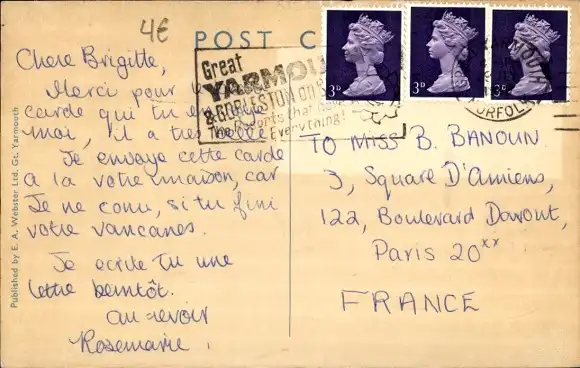 4€
POST C
Great
YARMOU
& GORLESTON ON
Two Resorts that
Everything!
YARMOUTH
NORFOLK
3D
3D
3D
Chere Brigitte,
Merci pour
carde qui tu
moi, il a tres belle
Je envoye cette carde
a la votre maison, car
Je ne conu, si tu fini
votre vancanes.
Je ecride tu une
lettre bientôt.
au revoir
Rosemarie.
TO MISS B. BANOUN
3, Square D'Amiens,
122, Boulevard Davout,
Paris 20xx
FRANCE
Published by E. A. Webster Ltd. Gt. Yarmouth